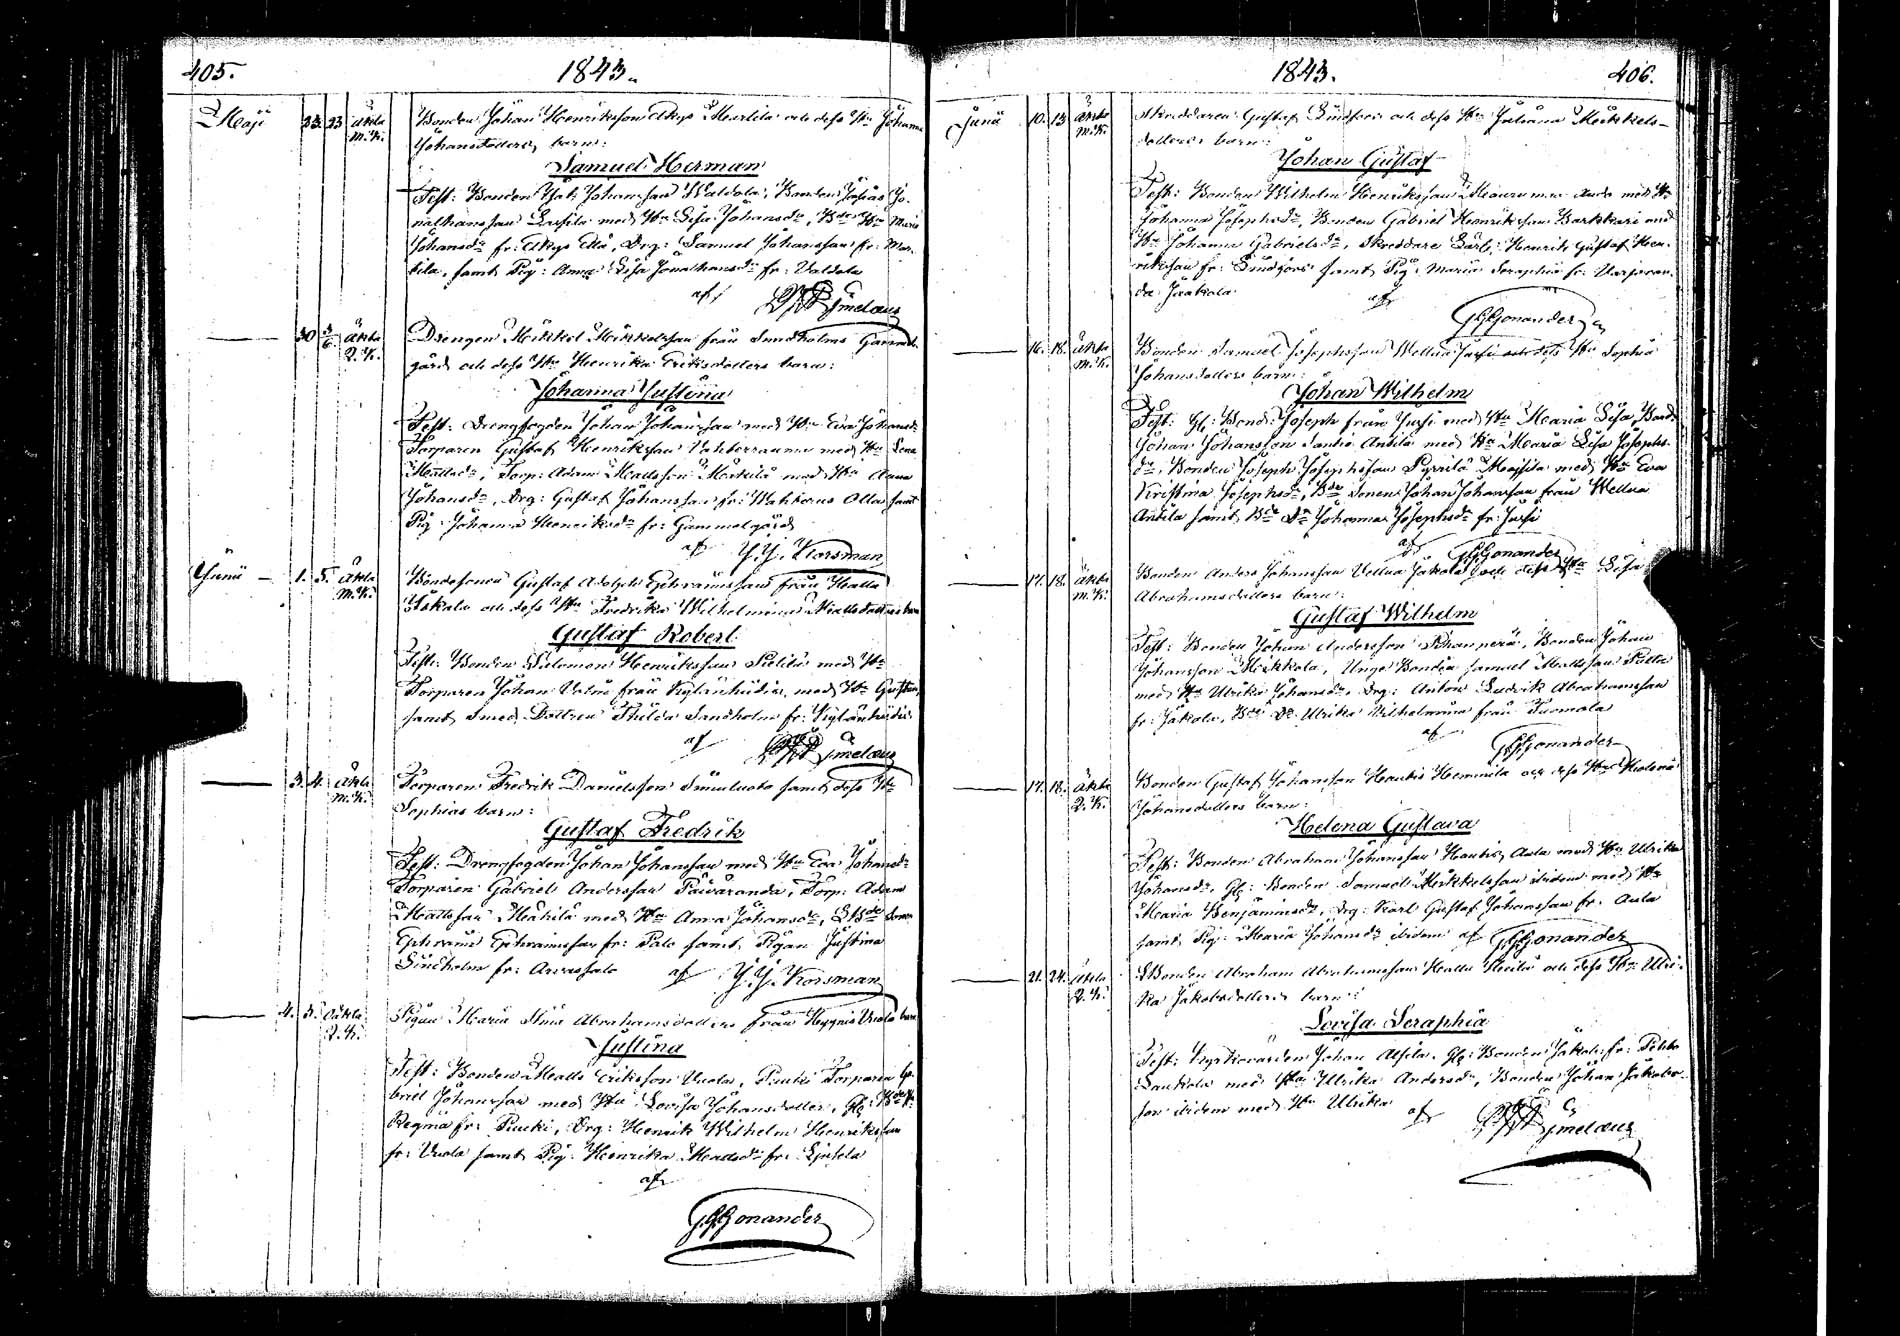 405. 1843.
Maji 23. 23 äkta Bonden Johan Henriksson Akys Murtila och dess Hu Johanna
M.K. Johansdoters barn:
Samuel Herman
Test: Bonden Isak Johansson Waldola, Bonden Josias Jo-
nathansson Lassila med Hu Lisa Johansdr, Bde Hu Maria
Johansdr fr: Akys Eko, Drg: Samuel Johansson fr: Mur-
tila, samt Pig: Anna Lisa Jonathansdr fr: Valdola
af
30 äkta Drengen Mikkel Mikkelsson från Sundholms Gammel-
Q.K. gård och dess Hu Henrika Eriksdotters barn:
Johanna Justina
Test: Drengfogden Johan Johansson med Hu Eva Johansd:
Torparen Gustaf Henriksson Vahterrauma med Hu Lena
Mattsdr, Torp: Adam Mattsson Mäkilä med Hu Anna
Johansdr, Drg: Gustaf Johansson fr: Olla samt
Pig Johanna Henriksdr fr: Gammelgård
af J.J. Korsman
Junii 1. 5. äkta Bondesonen Gustaf Adolph Ephraimsson från Hallu
M.K. Iskala och dess Hu Fredrika Wilhelmina Mattsdotters barn
Gustaf Robert
Test: Bonden Salomon Henriksson med Hu
Torparen Johan från med Hu Gustava,
samt Smed Dottren Thilda Sandholm fr:
af
3. 4. äkta Torparen Fredrik Danielsson Sunnluoto samt dess Hu
M.K. Sophias barn:
Gustaf Fredrik
Test: Drengfogden Johan Johansson med Hu Eva Johansdr
Torparen Gabriel Andersson Päiväranda, Torp: Adam
Mattsson Mäkilä med Hu Anna Johansdr, Bde Sonen
Ephraim Ephraimsson fr: Palo samt Pigan Justina
Sundholm fr: Arvassalo af J.J. Korsman
4. 5. Oäkta Pigan Maria Stina Abrahamsdotters från Heggnis Uuola barn
Q.K. Justina
Test: Bonden Matts Eriksson Uuola, Puuki Torparen Ga-
briel Johansson med Hu Lovisa Johansdotter, Gl: Bde H:
Regina fr: Puuki, Drg: Henrik Wilhelm Henriksson
fr: Uuola samt Pig: Henrika Mattsdr fr:
af
G.G. Gonander
1843. 406.
Junii 10. 13 äkta Skreddaren Gustaf Lindfors och dess Hu Juliana Mickels-
M.K. dotters barn:
Johan Gustaf
Test: Bonden Wilhelm Henriksson med Hu
Johanna Josephsdr, Bonden Gabriel Henriksson Barkkari med
Hu Johanna Gabrielsdr, Skreddare Lärl: Henrik Gustaf Hen-
riksson fr: Lindfors samt Pig Maria Seraphia fr: Varjoran-
da Jaakola
af
G.G. Gonander
16. 18. äkta Bonden Samuel Josephsson Wellua Jussi och dess Hu Sophia
M.K. Johansdotters barn:
Johan Wilhelm
Test: Gl: Bond: Joseph från Jussi med Hu Maria Lisa, Bond:
Johan Johansson Santio Antila med Hu Maria Lisa Josephs-
dr, Bonden Joseph Josephsson Pyrrilä med Hu Eva
Kristina Josephsdr, Bde Sonen Johan Johansson från Wellua
Antila samt Bde Dr Johanna Josephsdr fr: Jussi
af G.G. Gonander
17. 18. äkta Bonden Anders Johansson Vellua Jakola och dess Hu Lisa
M.K. Abrahamsdotters barn:
Gustaf Wilhelm
Test: Bonden Johan Andersson, Bonden Johan
Johansson Mikkola, Unge Bonden Samuel Mattsson
med Hu Ulrika Johansdr, Drg: Anton Ludvik Abrahamsson
fr: Jakola, Bde Dr Ulrika Wilhelmina från Tuomola
af G.G. Gonander
17. 18. äkta Bonden Gustaf Johansson Hautis Hemmila och dess Hu Helena
Q.K. Johansdotters barn:
Helena Gustava
Test: Bonden Abraham Johansson Hautis Aula med Hu Ulrika
Johansdr, Gl: Bonden Samuel Mikkelsson ibidem med Hu
Maria Benjaminsdr, Drg: Karl Gustaf Johansson fr: Aula
samt Pig: Maria Johansdr ibidem af G.G. Gonander
21. 24. äkta Bonden Abraham Abrahamsson Hallu Heilä och dess Hu Ulri-
Q.K. ka Jakobsdotters barn:
Lovisa Seraphia
Test: Kyrkovärden Johan Alsila, Gl: Bonden Jakob fr:
Laukola med Hu Ulrika Andersdr, Bonden Johan Jakobs-
son ibidem med Hu Ulrika af